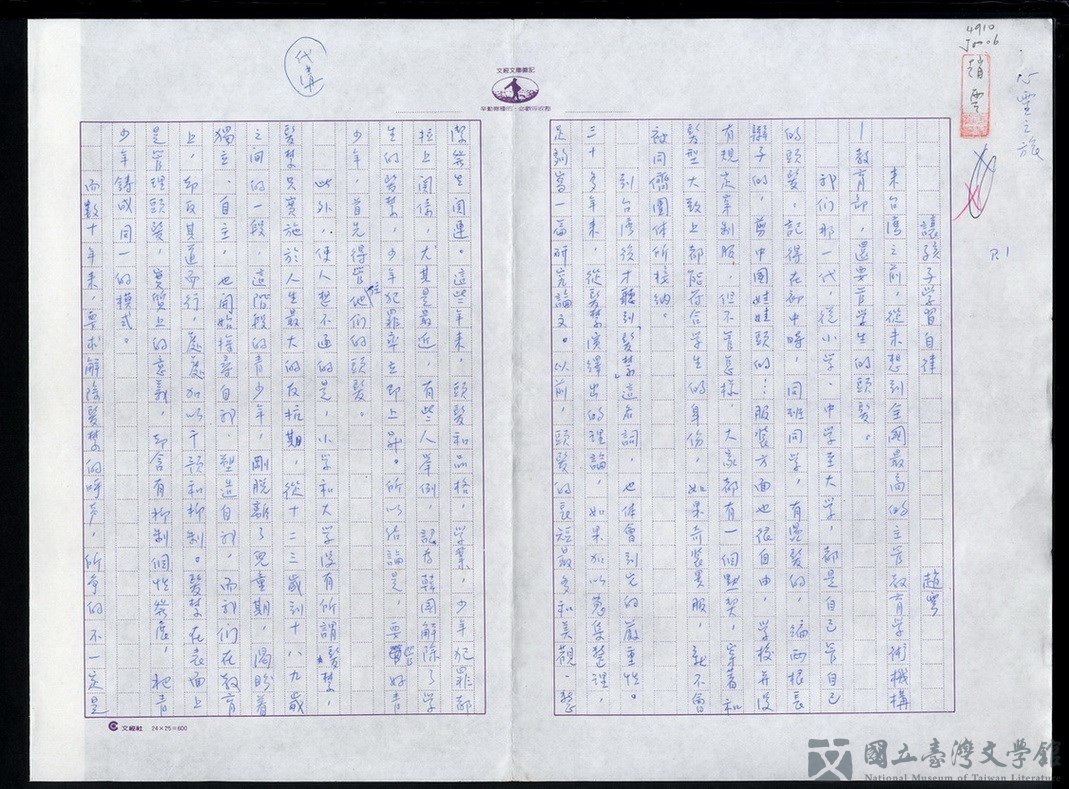 心靈之旅
4910
趙雲
P.1
代書
文經文庫圖記
讓孩子学習自律
趙雲
來台灣之前，從未想到全國最高的主管教育学術機構
—教育部，還要管学生的頭髮。
我們那一代，從小学、中学至大学，都是自己管自己
的頭髮。記得在初中時，同班同学，有燙髮的，編兩根長
辮子的，剪中國娃娃頭的…服裝方面也很自由，学校并沒
有規定某制服，但不管怎樣，大家都有一個默契，穿著和
髮型大致上都能符合学生的身份，如果奇裝異服，就不會
被同儕團体所接納。
到台灣後才聽到「髮禁」這名詞，也体會到它的嚴重性。
三十多年來，從髮禁演繹出的理論，如果加以蒐集整理，
足夠寫一篇研究論文。以前，頭髮的長短最多和美觀、整
潔發生関連。這些年來，頭髮和品格，学業，少年犯罪都
拉上関係，尤其是最近，有些人举例，認為韓國解除了学
生的髮禁，少年犯罪率立即上昇。所以结論是，要管好青
少年，首先得管住他們的頭髮。
此外，使人想不通的是，小学和大学沒有所謂「髮禁」，
髮禁只實施於人生最大的反抗期，從十二三歲到十八九歲
之间的一段，這階段的青少年，剛脫離了兒童期，渴盼着
獨立、自主，也開始探尋自我、塑造自我，而我們在教育
上，却反其道而行，處處加以干預和抑制。髮禁在表面上
是管理頭髮，實質上的意義，却含有抑制個性發展，把青
少年鑄成同一的模式。
而數十年來，要求解除髮禁的呼声，所争的不一定是
文經社 24×25=600
國立臺灣文學館
National Museum of Taiwan Literature